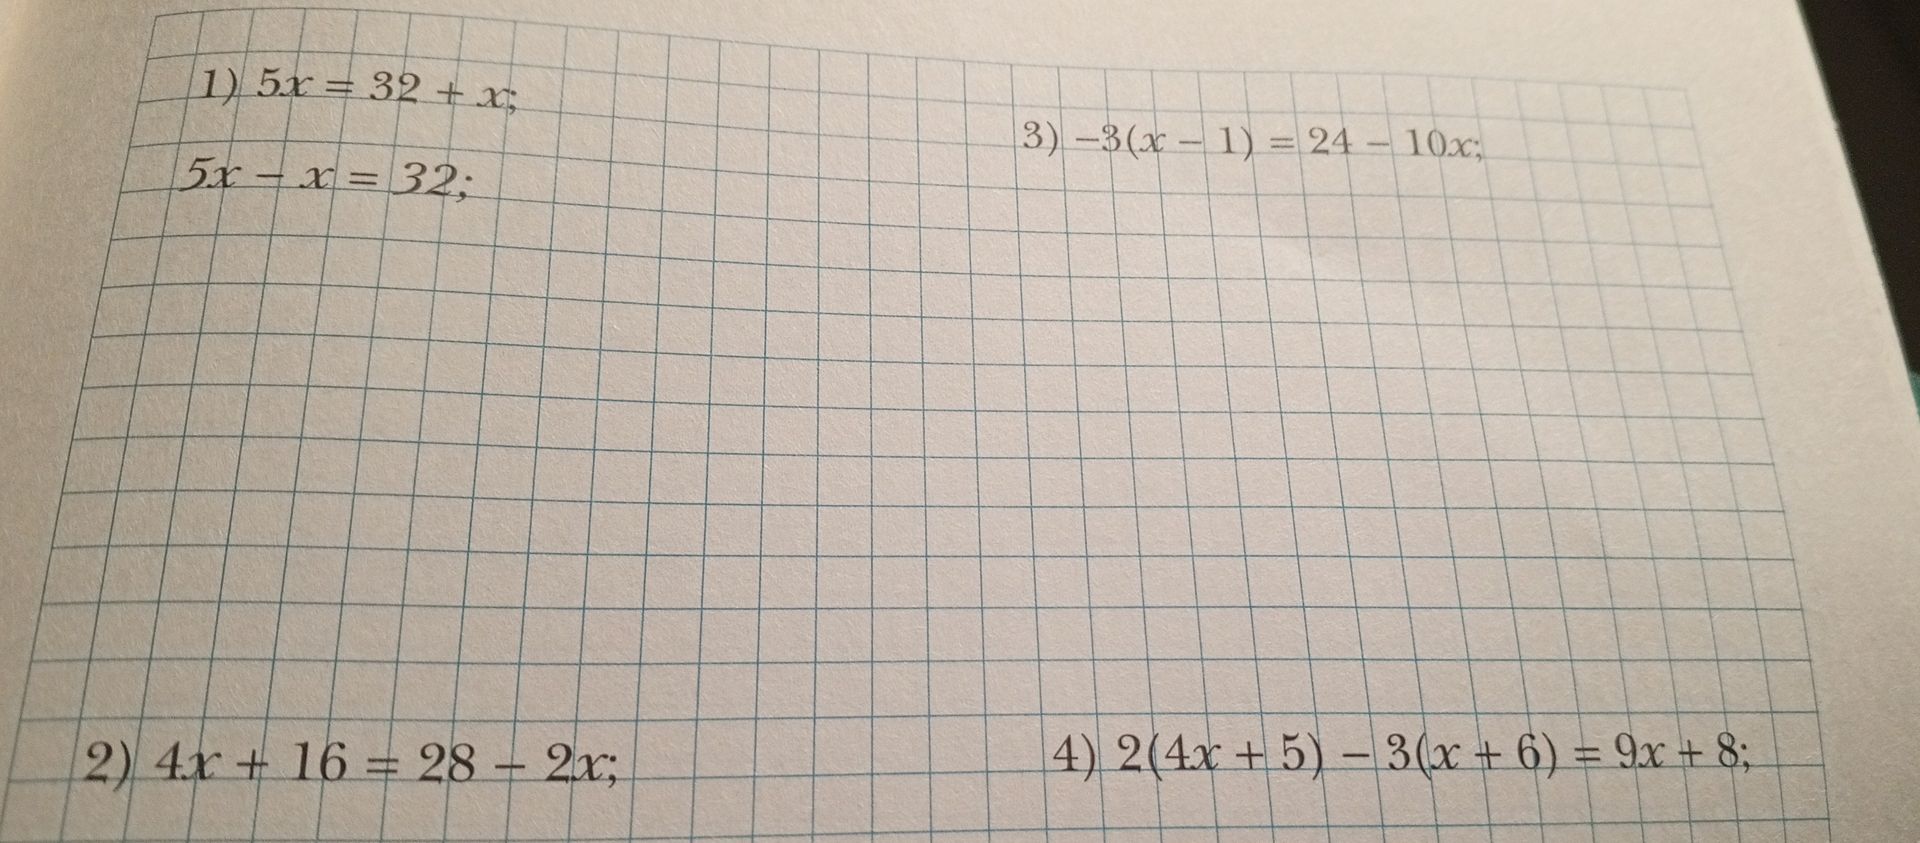 1) 5x = 32 + x;
5x − x = 32;
2) 4x + 16 = 28 − 2x;
3) −3(x − 1) = 24 − 10x;
4) 2(4x + 5) − 3(x + 6) = 9x + 8;